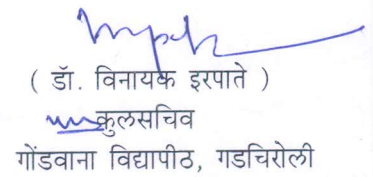 ( डॉ. विनायक इरपाते )
कुलसचिव
गोंडवाना विद्यापीठ, गडचिरोली